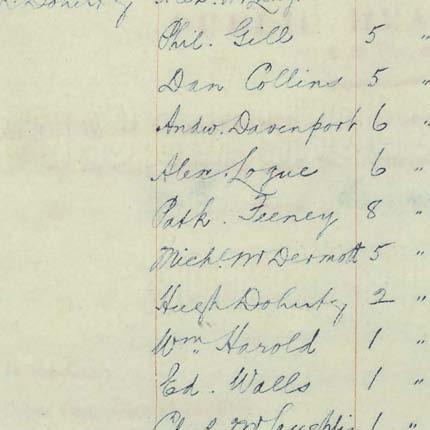 Phil. Gill 5 "
Dan Collins 5 "
Andw. Davenport 6 "
Alex. Logue 6 "
Patk. Feeney 8 "
Michl. McDermott 5 "
Hugh Doherty 2 "
Wm. Harold 1 "
Ed. Walls 1 "
McLaughlin 1 "